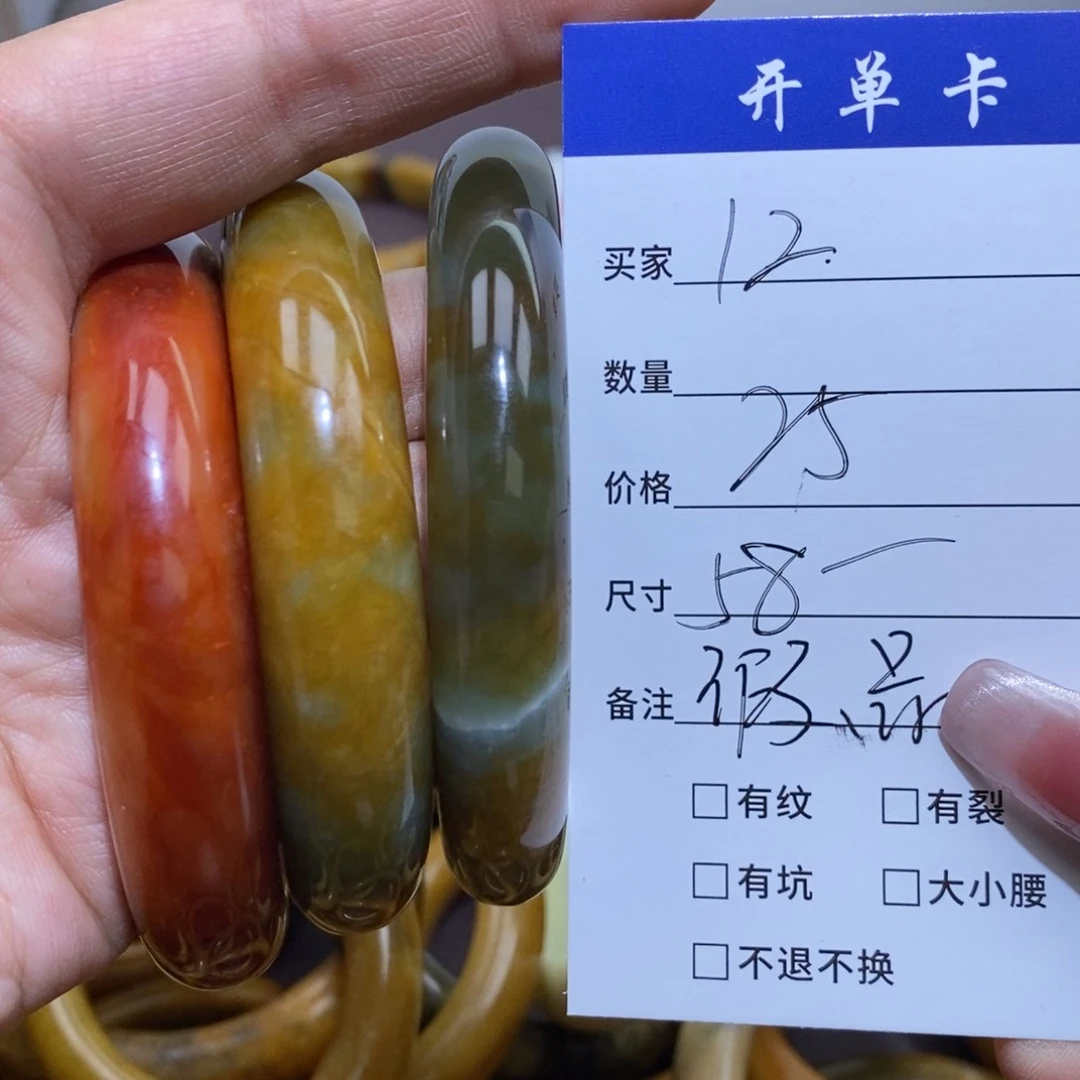 开单卡
买家 12.
数量
价格 25
尺寸 58-
备注 假一品
有纹 有裂
有坑 大小腰
不退不换